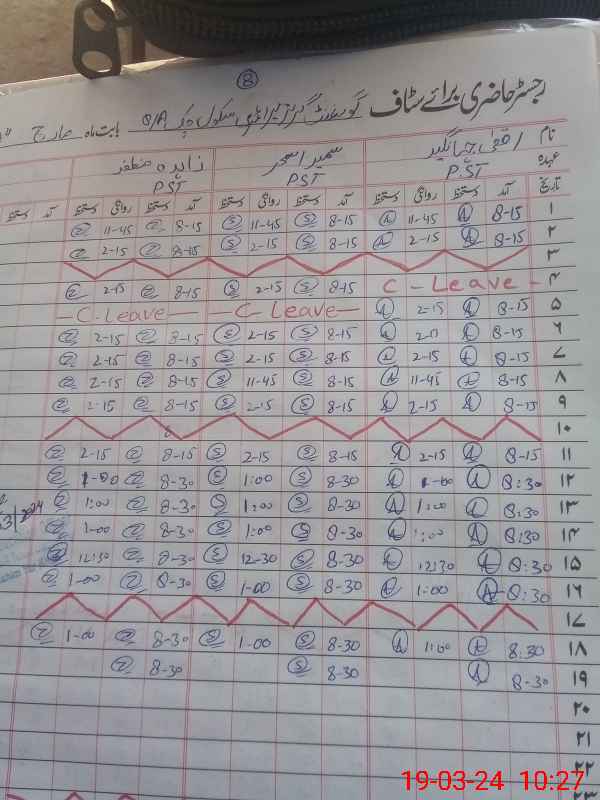 8
رجسٹر حاضری برائے سٹاف گورنمنٹ گرلز پرائمری سکول بابت ماہ مارچ
نام
عہدہ PST سمیرا PST زاہدہ مظفر PST
تاریخ آمد دستخط روانگی دستخط آمد دستخط روانگی دستخط آمد دستخط روانگی دستخط آمد دستخط
۱ 8-15 A 11-45 A 8-15 S 11-45 S 8-15 Z 11-45 Z
۲ 8-15 A 2-15 A 8-15 S 2-15 S 8-15 Z 2-15 Z
۳
۴ C - Leave - 8-15 S 2-15 S 8-15 Z 2-15 Z
۵ 8-15 A 2-15 A - C Leave - - C - Leave -
۶ 8-15 A A 8-15 S 2-15 S 8-15 Z 2-15 Z
۷ 8-15 A 2-15 A 8-15 S 2-15 S 8-15 Z 2-15 Z
۸ 8-15 A 11-45 A 8-15 S 11-45 S 8-15 Z 2-15 Z
۹ 8-15 A 2-15 A 8-15 S 2-15 S 8-15 Z 2-15 Z
۱۰
۱۱ 8-15 A 2-15 A 8-15 S 2-15 S 8-15 Z 2-15 Z
۱۲ 8:30 A 1-00 A 8-30 S 1:00 S 8-30 Z 1-00 Z
۱۳ 8:30 A 1:00 A 8-30 S 1:00 S 8-30 Z 1:00 Z
۱۴ 8:30 A 1:00 A 8-30 S 1:00 S 8-30 Z 1-00 Z
۱۵ 8:30 A 12:30 A 8-30 S 12-30 S 8-30 Z 12:30 Z
۱۶ 8:30 A 1:00 A 8-30 S 1-00 S 8-30 Z 1-00 Z
۱۷
۱۸ 8:30 A 1:00 A 8-30 S 1-00 S 8-30 Z 1-00 Z
۱۹ 8-30 A 8-30 S 8-30 Z
۲۰
۲۱
۲۲
۲۳
19-03-24 10:27